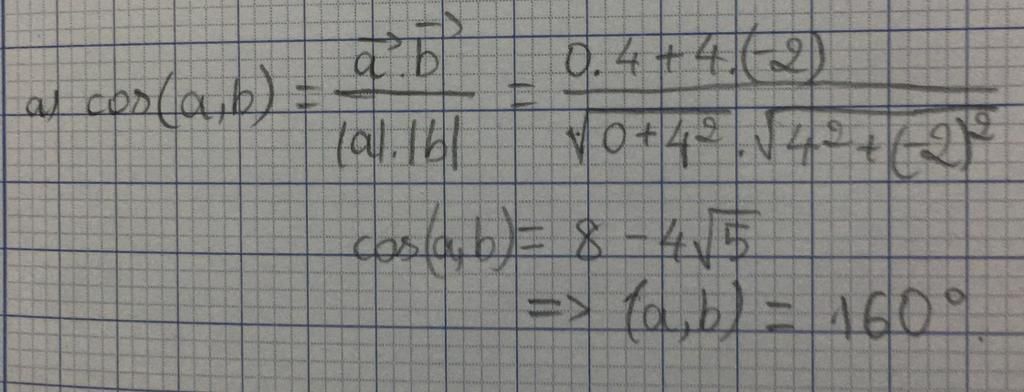 a) cos(a,b) = \frac{\vec{a}.\vec{b}}{|a|.|b|} = \frac{0.4+4.(-2)}{\sqrt{0+4^2}.\sqrt{4^2+(-2)^2}}
cos(a,b) = 8 - 4\sqrt{5}
=> (a,b) = 160°.